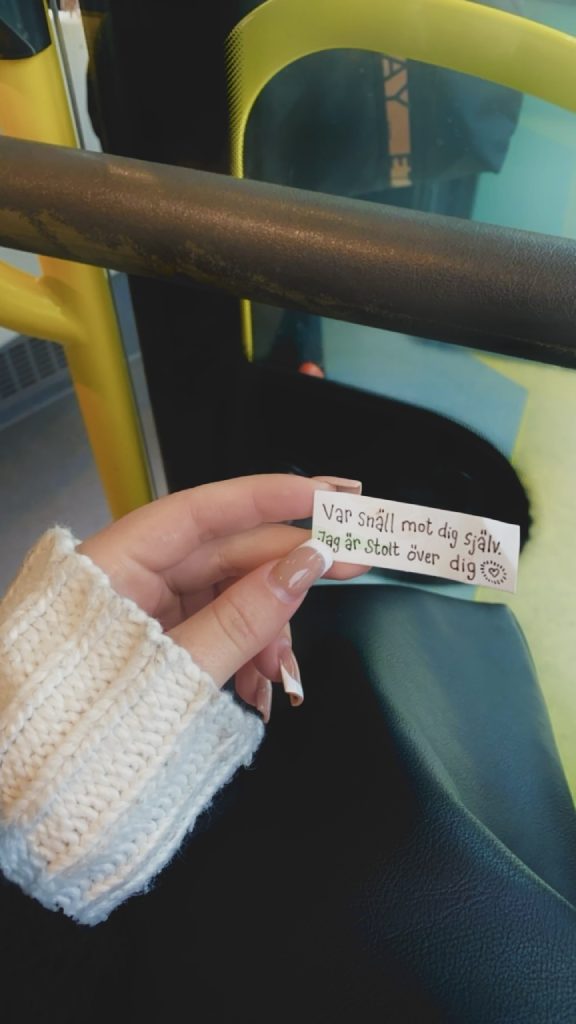 Var snäll mot dig själv.
Jag är Stolt över dig